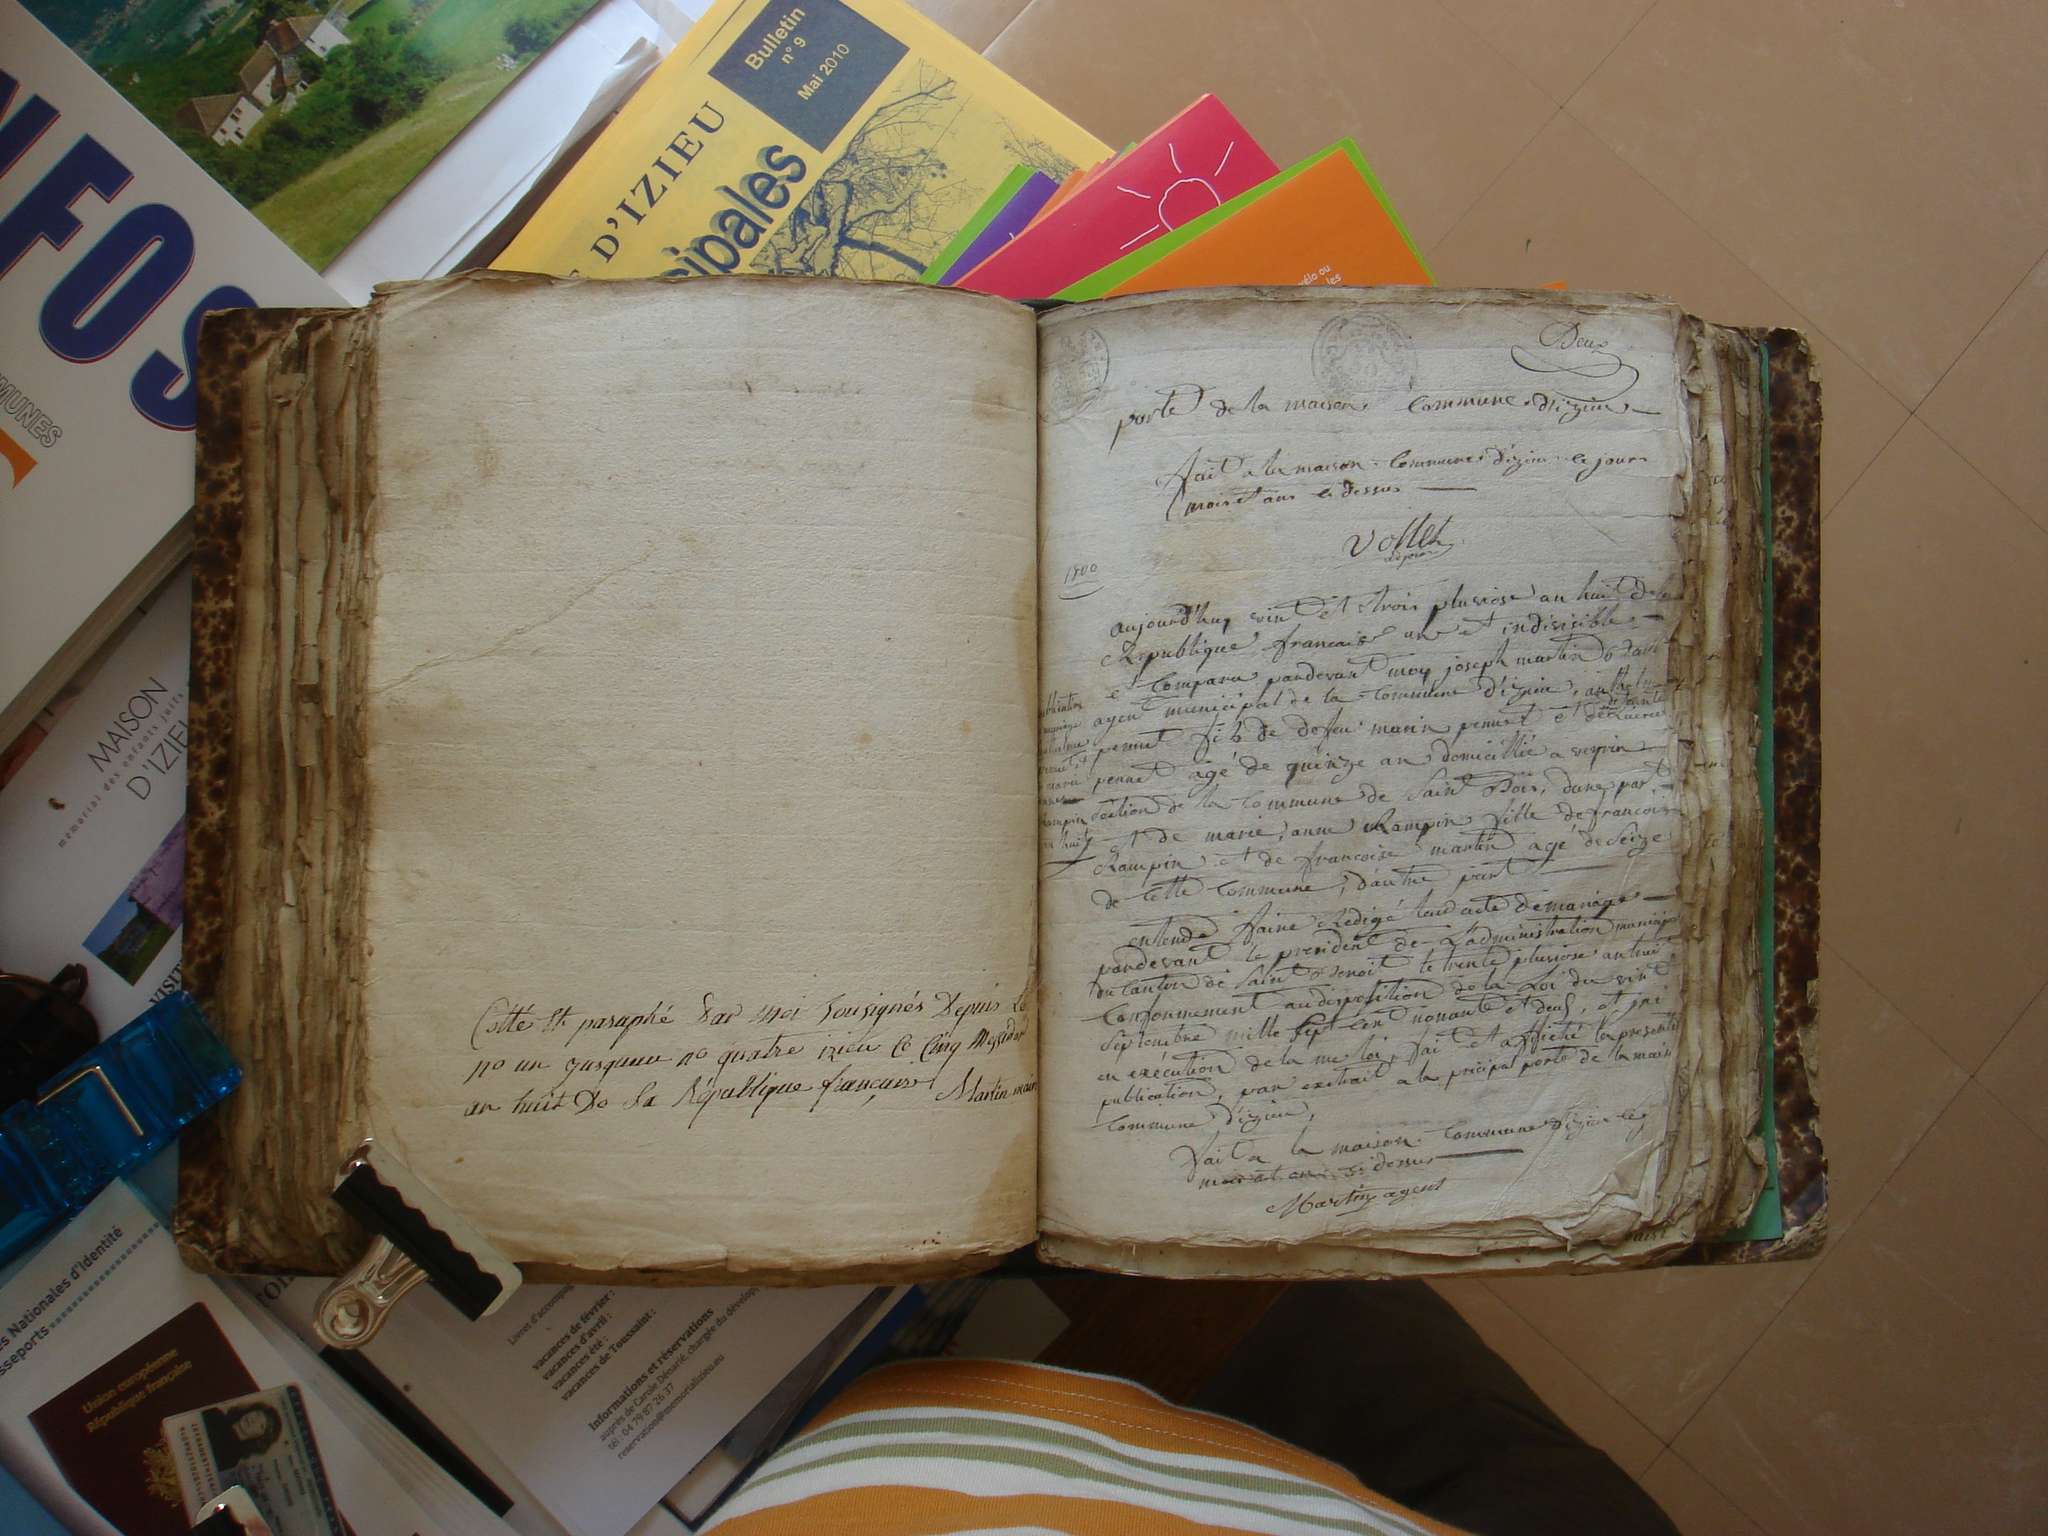 Bulletin
n° 9
Mai 2010
D'IZIEU
cipales
NFOS
MUNES
MAISON
D'IZIEU
memorial des enfants juifs
VISIT
élo ou
les
Cotté et paraphé par moi Sousignés Depuis le
no un jusqueau no quatre izieu ce Cinq Messidor
an huit De la République française Martin maire
Deux
porte de la maison Commune d'izieu
fait a la maison Commune d'izieu le jour
mois et ans ci dessus
vollet
adjoint
1800
aujourd'huy vint et trois pluviose an huit de la
Republique francaise une et indivisible
et Comparu pardevant moy joseph martin
agent municipal de la Commune d'izieu
pernet fils de defeu marin pernet et de
pernet agé de quinze an domicillié a veyrin
section de la Commune de Saint Bois, dune part
et de marie anne Rampin fille de francois
Rampin et de francoise martin agé de Seize
de cette Commune, d'autre part
entende faire Redigé leud acte de mariage
pardevant le president de L'administration municipal
du Canton de Saint Benoit le trente pluviose an huit
Conformement au disposition de la Loi du vint
Septembre mille Sept cent nonante et deux, et jai
en exécution de la me loi, fai et affiché la presente
publication, par extrait a la pricipal porte de la maison
Commune d'izieu,
fait a la maison Commune d'izieu le
mois et an ci dessus
Martin agent
es Nationales d'Identité
sseports
Union européenne
République française
Livret d'accompa
vacances de février :
vacances d'avril :
vacances été :
vacances de Toussaint :
Informations et réservations
auprès de Carole Dénarié, chargée du dévelop
tél : 04 79 87 26 37
reservation@memorializieu.eu